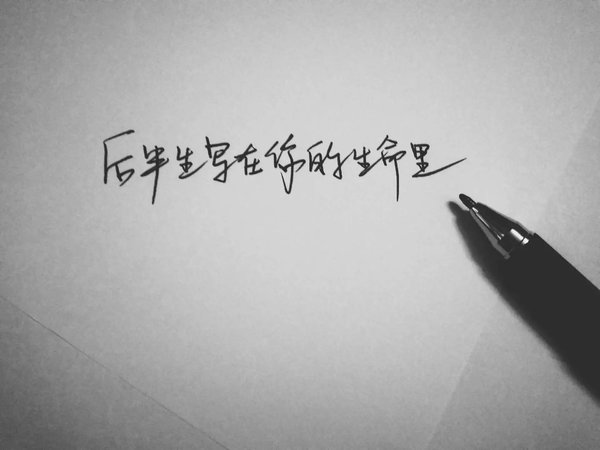 后半生写在你的生命里